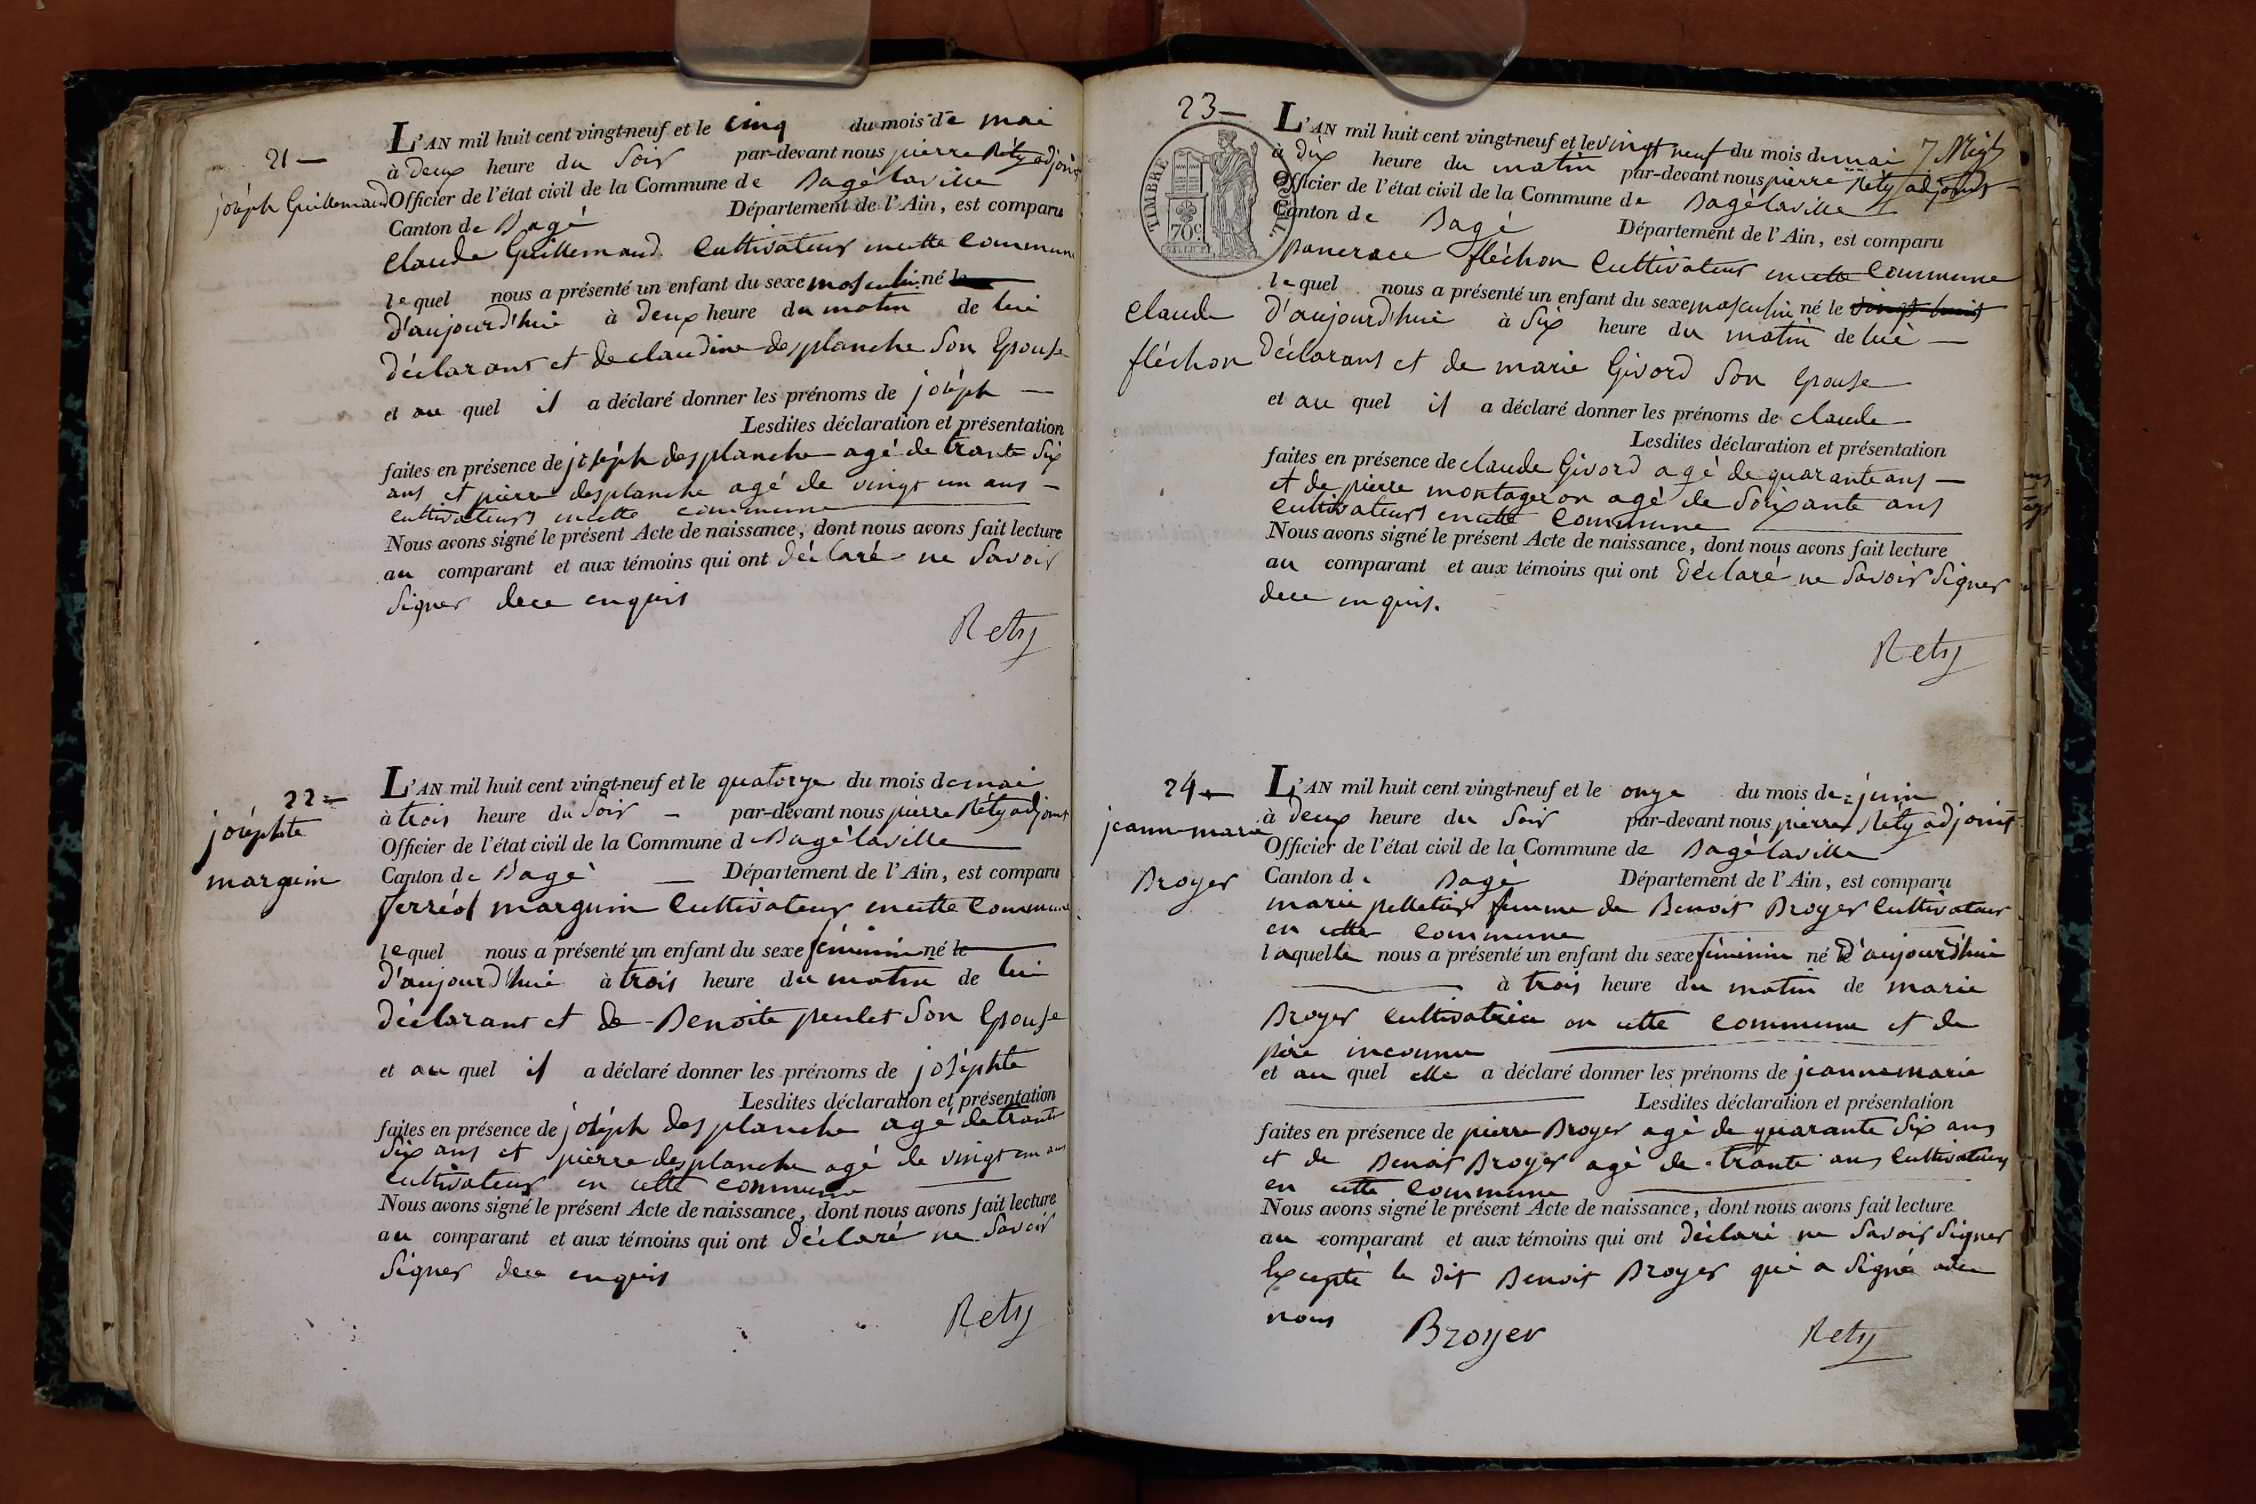 21 —
joséph Guillemaud
L'AN mil huit cent vingt-neuf et le cinq du mois de mai
à deux heure du soir par-devant nous pierre Réty adjoint
Officier de l'état civil de la Commune de Bagélaville
Canton de Bagé Département de l'Ain, est comparu
claude Guillemaud cultivateur encette commune
lequel nous a présenté un enfant du sexe masculin né le
d'aujourd'hui à deux heure du matin de lui
déclarant et de claudine desplanche son epouse
et au quel il a déclaré donner les prénoms de joséph —
Lesdites déclaration et présentation
faites en présence de joséph desplanche agé de trante six
ans et pierre desplanche agé de vingt un ans —
cultivateurs encette commune
Nous avons signé le présent Acte de naissance, dont nous avons fait lecture
au comparant et aux témoins qui ont déclaré ne savoir
signer dece enquis
Rety
22 =
joséphte
marguin
L'AN mil huit cent vingt-neuf et le quatorze du mois de mai
à trois heure du soir — par-devant nous pierre Réty adjoint
Officier de l'état civil de la Commune d Bagélaville
Canton de Bagé — Département de l'Ain, est comparu
ferréol marguin cultivateur encette commune
lequel nous a présenté un enfant du sexe féminin né le
d'aujourd'hui à trois heure du matin de lui
déclarant et de Benoite peulet son epouse
et au quel il a déclaré donner les prénoms de joséphte
Lesdites déclaration et présentation
faites en présence de joséph desplanche agé detrante
six ans et pierre desplanche agé de vingt un ans
cultivateurs en cette commune
Nous avons signé le présent Acte de naissance, dont nous avons fait lecture
au comparant et aux témoins qui ont déclaré ne savoir
signer dece enquis
Rety
23 —
TIMBRE
70c
claude
fléchon
L'AN mil huit cent vingt-neuf et le vingt neuf du mois demai
à dix heure du matin par-devant nous pierre Réty adjoint
Officier de l'état civil de la Commune de Bagélaville
Canton de Bagé Département de l'Ain, est comparu
pancrace fléchon cultivateur encette commune
lequel nous a présenté un enfant du sexe masculin né le vingt huit
d'aujourd'hui à six heure du matin de lui —
déclarant et de marie Givord son epouse
et au quel il a déclaré donner les prénoms de claude —
Lesdites déclaration et présentation
faites en présence de claude Givord agé de quarante ans —
et de pierre montageron agé de soixante ans
cultivateurs encette commune
Nous avons signé le présent Acte de naissance, dont nous avons fait lecture
au comparant et aux témoins qui ont déclaré ne savoir signer
dece enquis.
Rety
24 —
jeanne marie
Broyer
L'AN mil huit cent vingt-neuf et le onze du mois de juin
à deux heure du soir par-devant nous pierre Réty adjoint
Officier de l'état civil de la Commune de Bagélaville
Canton de Bagé Département de l'Ain, est comparu
marie pelletier femme de Benoit Broyer cultivateur
en cette commune
laquelle nous a présenté un enfant du sexe féminin né le d'aujourd'hui
à trois heure du matin de marie
Broyer cultivatrice en cette commune et de
père inconnu
et au quel elle a déclaré donner les prénoms de jeannemarie
Lesdites déclaration et présentation
faites en présence de pierre Broyer agé de quarante six ans
et de Benoit Broyer agé de trante ans cultivateurs
en cette commune
Nous avons signé le présent Acte de naissance, dont nous avons fait lecture
au comparant et aux témoins qui ont déclaré ne savoir signer
excepté le dit Benoit Broyer qui a signé avec
nous
Broyer Rety